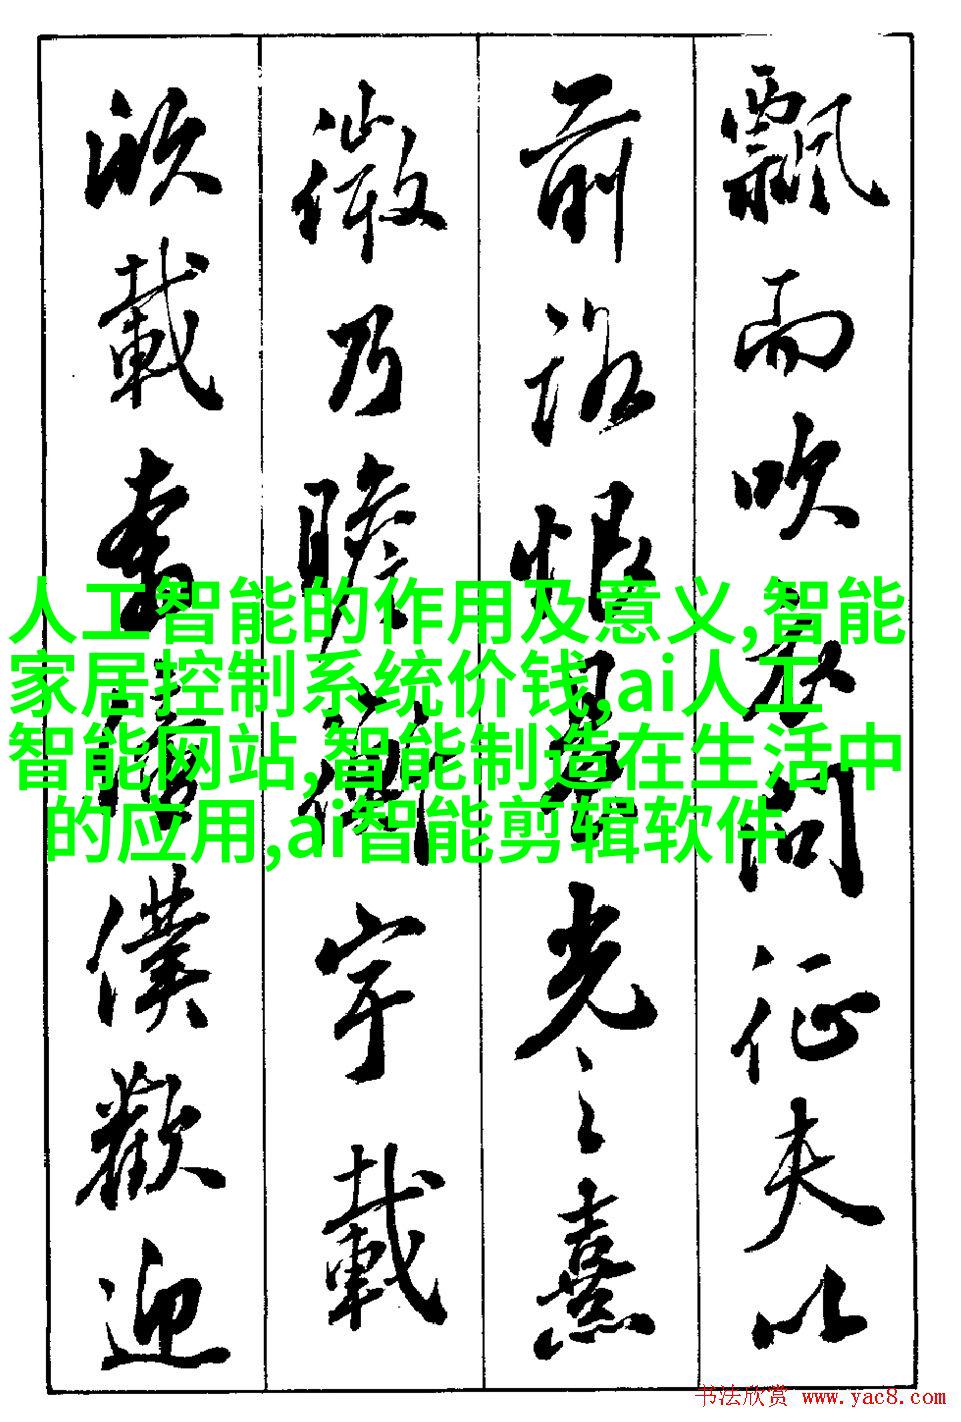 飄而吹衣問征夫以
前路恨晨光之熹
微乃瞻衡宇載
欣載奔僮僕歡迎
人工智能的作用及意义,智能
家居控制系统价钱,ai人工
智能网站,智能制造在生活中
的应用,ai智能剪辑软件
书法欣赏 www.yac8.com